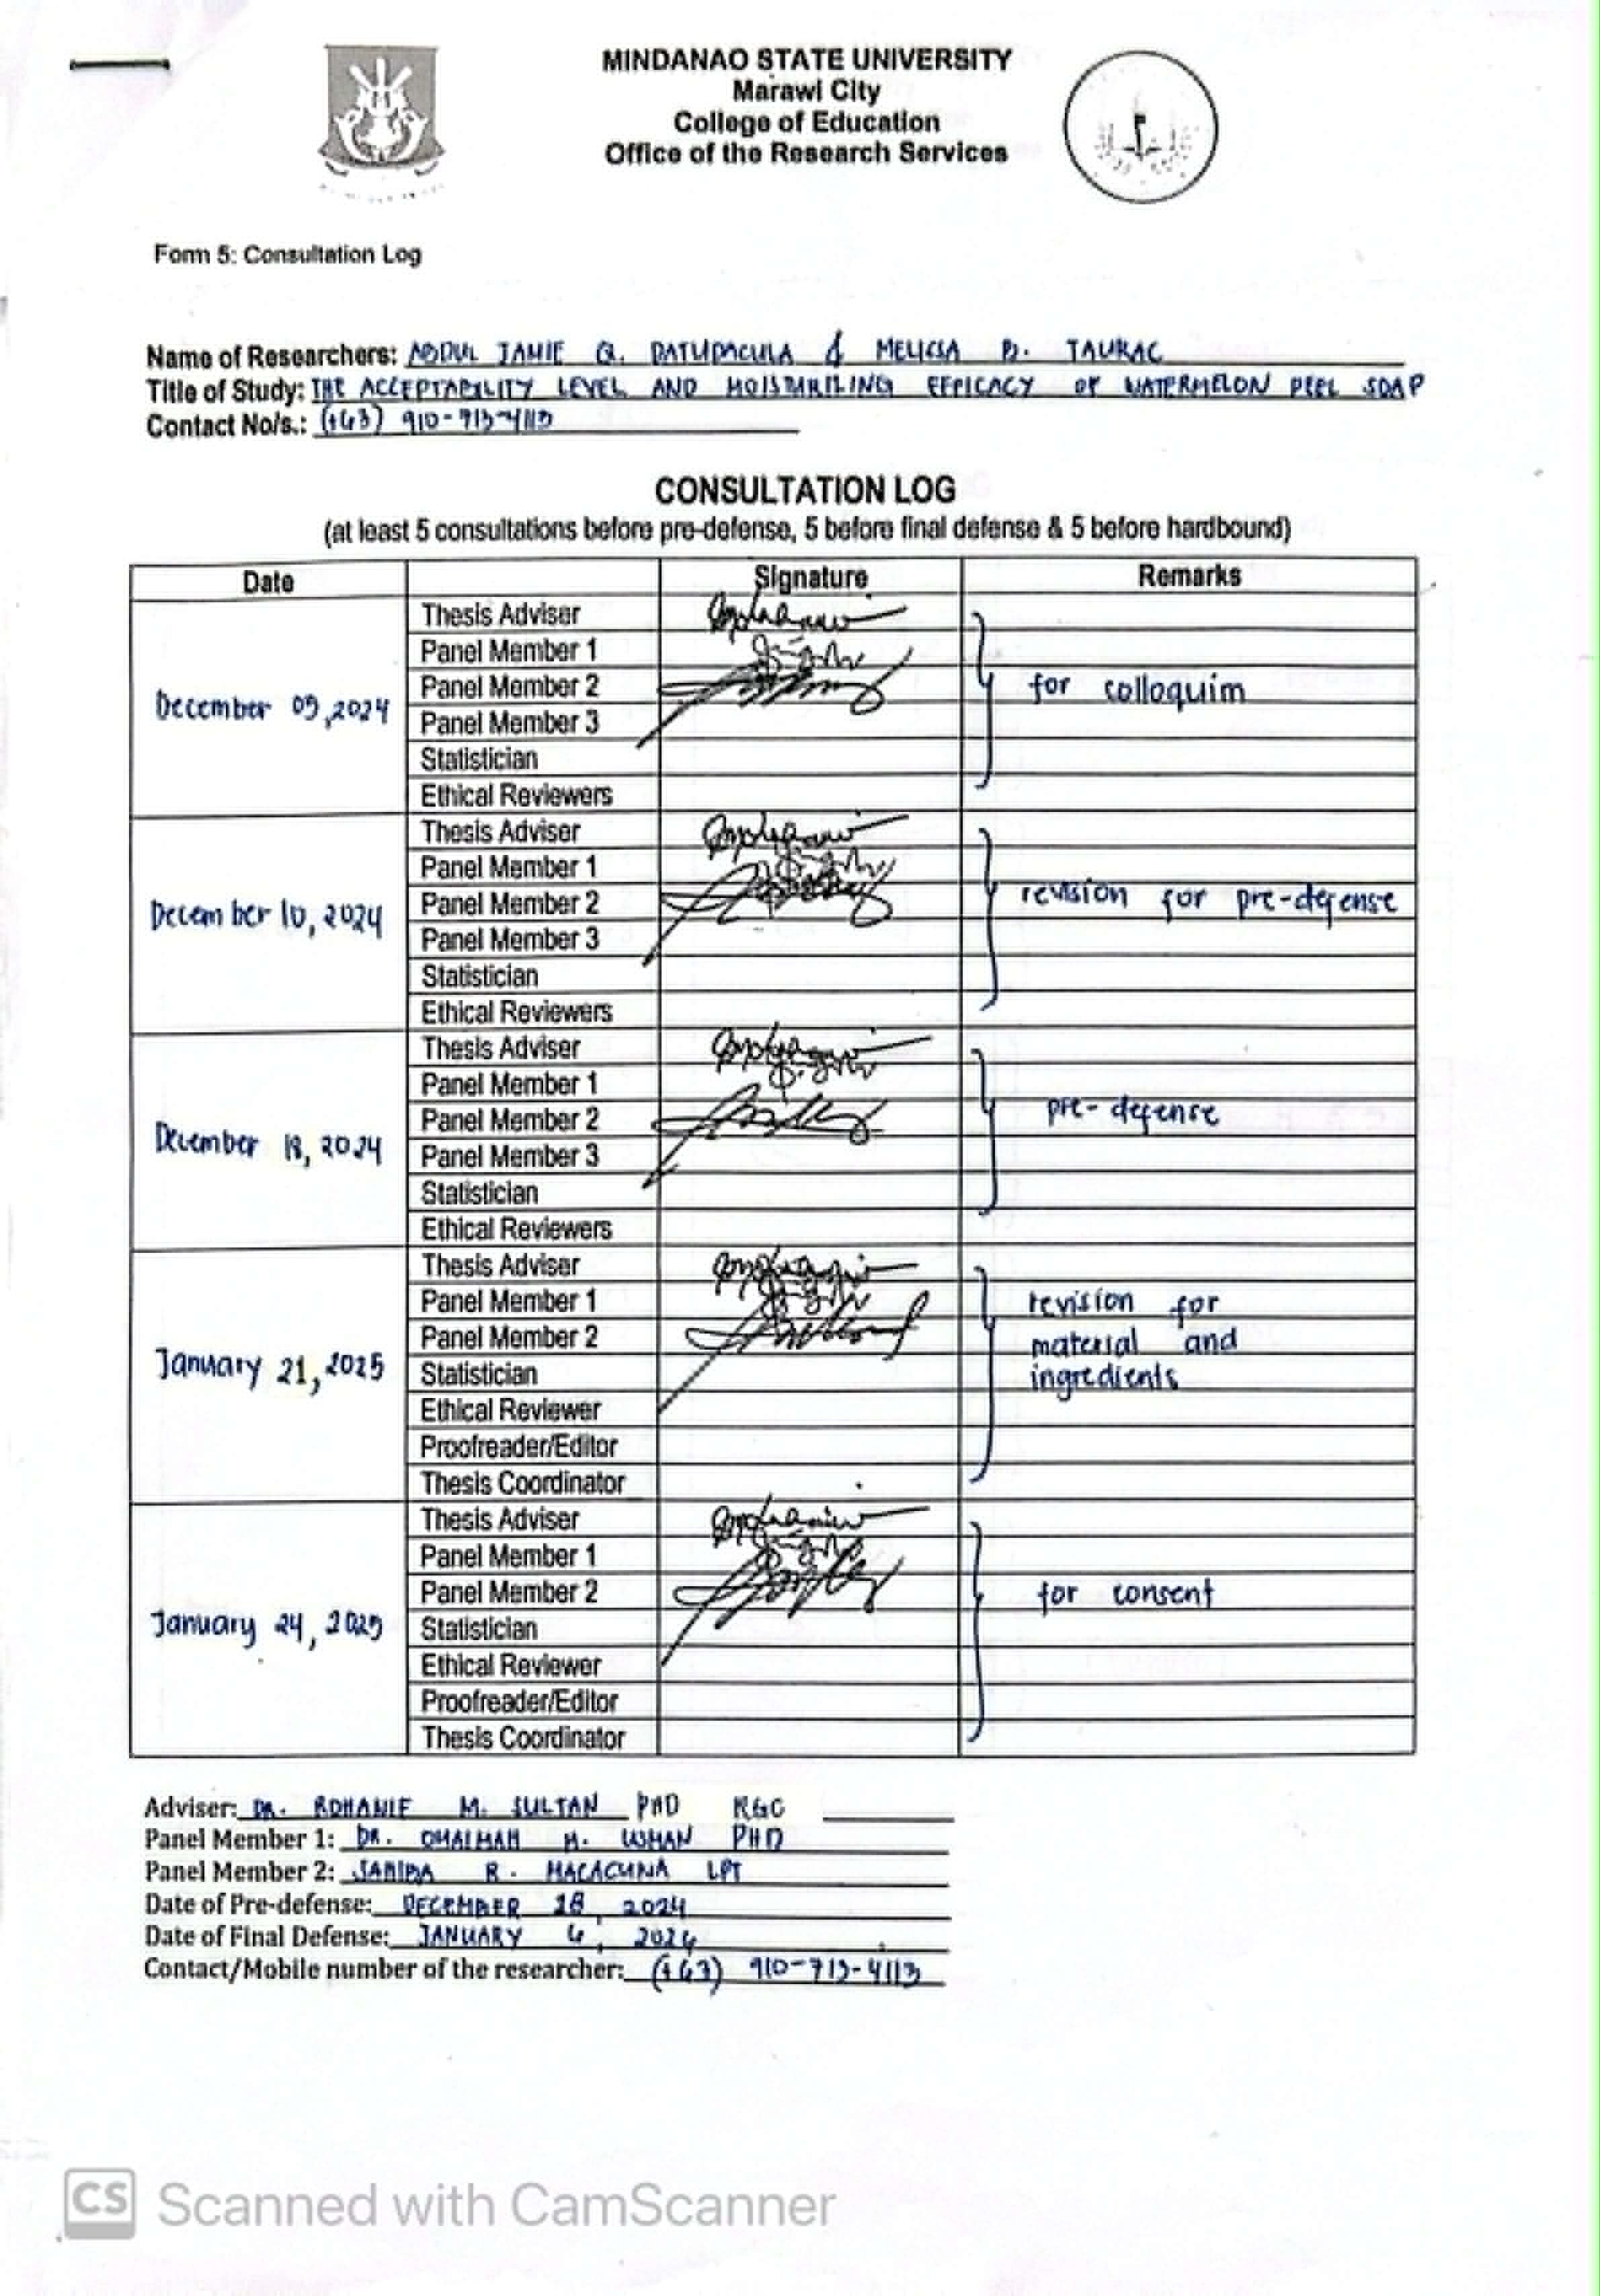 MINDANAO STATE UNIVERSITY
Marawi City
College of Education
Office of the Research Services
Form 5: Consultation Log
Name of Researchers: ABDUL JAMIE Q. DATUDACULA & MELISSA D. TAURAC
Title of Study: THE ACCEPTABILITY LEVEL AND MOISTURIZING EFFICACY OF WATERMELON PEEL SOAP
Contact No/s.: (+63) 910-713-4113
CONSULTATION LOG
(at least 5 consultations before pre-defense, 5 before final defense & 5 before hardbound)
Date Signature Remarks
December 09, 2024
Thesis Adviser
Panel Member 1
Panel Member 2
Panel Member 3
Statistician
Ethical Reviewers
for colloquim
December 10, 2024
Thesis Adviser
Panel Member 1
Panel Member 2
Panel Member 3
Statistician
Ethical Reviewers
revision for pre-defense
December 18, 2024
Thesis Adviser
Panel Member 1
Panel Member 2
Panel Member 3
Statistician
Ethical Reviewers
pre-defense
January 21, 2025
Thesis Adviser
Panel Member 1
Panel Member 2
Statistician
Ethical Reviewer
Proofreader/Editor
Thesis Coordinator
revision for
material and
ingredients
January 24, 2025
Thesis Adviser
Panel Member 1
Panel Member 2
Statistician
Ethical Reviewer
Proofreader/Editor
Thesis Coordinator
for consent
Adviser: DR. ROHANIE M. SULTAN PHD RGC
Panel Member 1: DR. M. PHD
Panel Member 2: R. LPT
Date of Pre-defense: DECEMBER 18, 2024
Date of Final Defense: JANUARY 6,
Contact/Mobile number of the researcher: (+63) 910-713-4113
CS Scanned with CamScanner